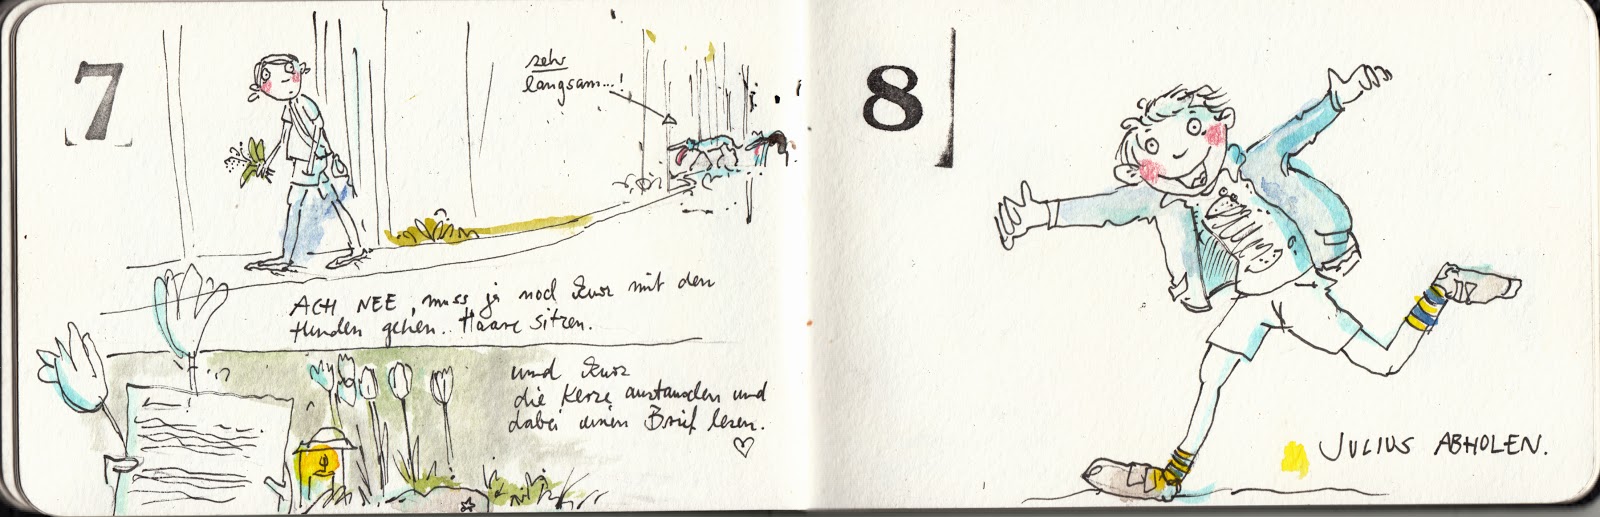 7
sehr
langsam...!
ACH NEE, muss ja noch kurz mit den
Hunden gehen.. Haare sitzen.
und kurz
die Kerze austauschen und
dabei einen Brief lesen.
8
JULIUS ABHOLEN.